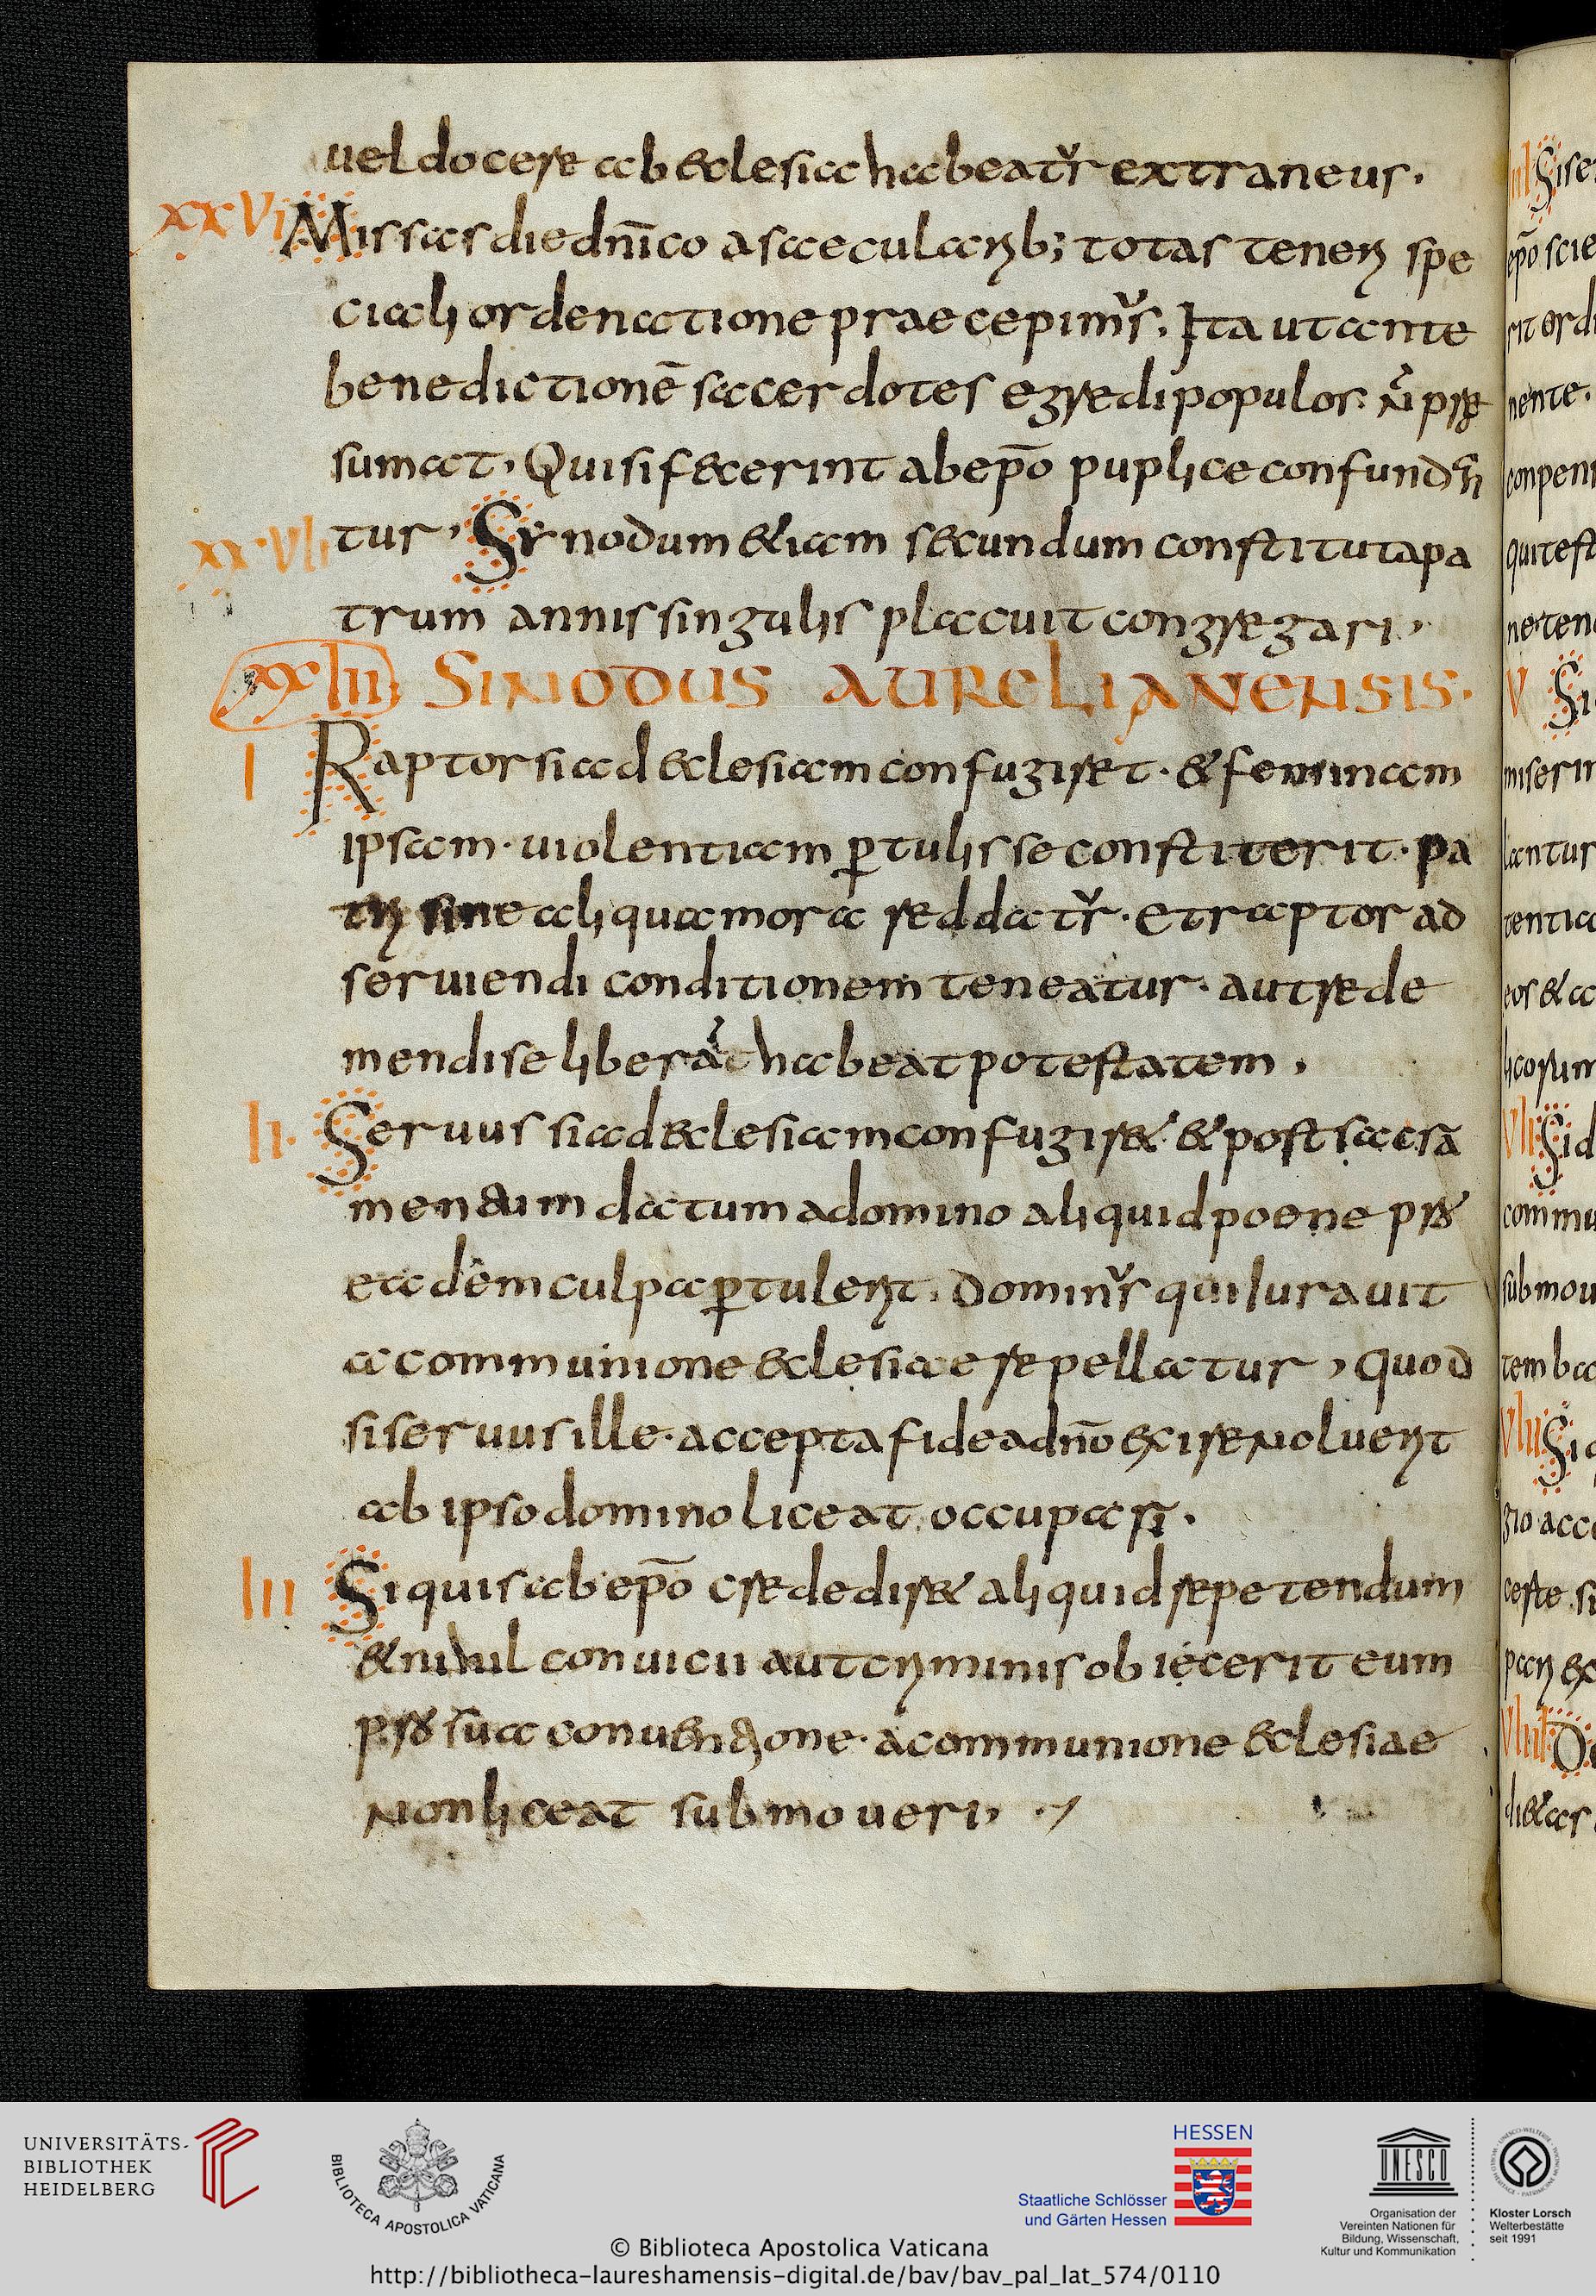 uel docere ab eclesia habeatr̃ extraneus.
XXVI Missas die dnīco a saecularib; totas teneri spe
ciali ordenatione praecepimr̃s. Ita ut ante
benedictionē sacerdotes egredi populos nñ prę
sumat. Qui si fecerint ab ep̄o puplice confunden
XXVII tur, Synodum etiam secundum constituta pa
trum annis singulis placuit congregari,
XXVIII SINODUS AURELIANENSIS.
I Raptor si ad eclesiam confugiret. et feminam
ipsam. uiolentiam ꝑtulisse constiterit. pa
tri sine aliqua mora reddatr̃. Et raptor ad
seruiendi conditionem teneatur. aut rede
mendi se liberat habeat potestatem,
II. Seruus si ad eclesiam confugiret. et post sacrā
mentum datum a domino aliquid poene pro
ea dem culpa ꝑtulerit. Dominr̃s qui iurauit
a communione eclesiae repellatur, quod
si seruus ille. accepta fide a dnō exire noluerit
ab ipso domino liceat occupari.
III Si quis ab ep̄o crededirit aliquid repetendum
et nihil conuicii aut criminis obiecerit eum
pro sua conuentione. a communione eclesiae
non liceat submoueri,
UNIVERSITÄTS-
BIBLIOTHEK
HEIDELBERG
BIBLIOTECA APOSTOLICA VATICANA
HESSEN
Staatliche Schlösser
und Gärten Hessen
UNESCO
Organisation der
Vereinten Nationen für
Bildung, Wissenschaft,
Kultur und Kommunikation
Kloster Lorsch
Welterbestätte
seit 1991
© Biblioteca Apostolica Vaticana
http://bibliotheca-laureshamensis-digital.de/bav/bav_pal_lat_574/0110